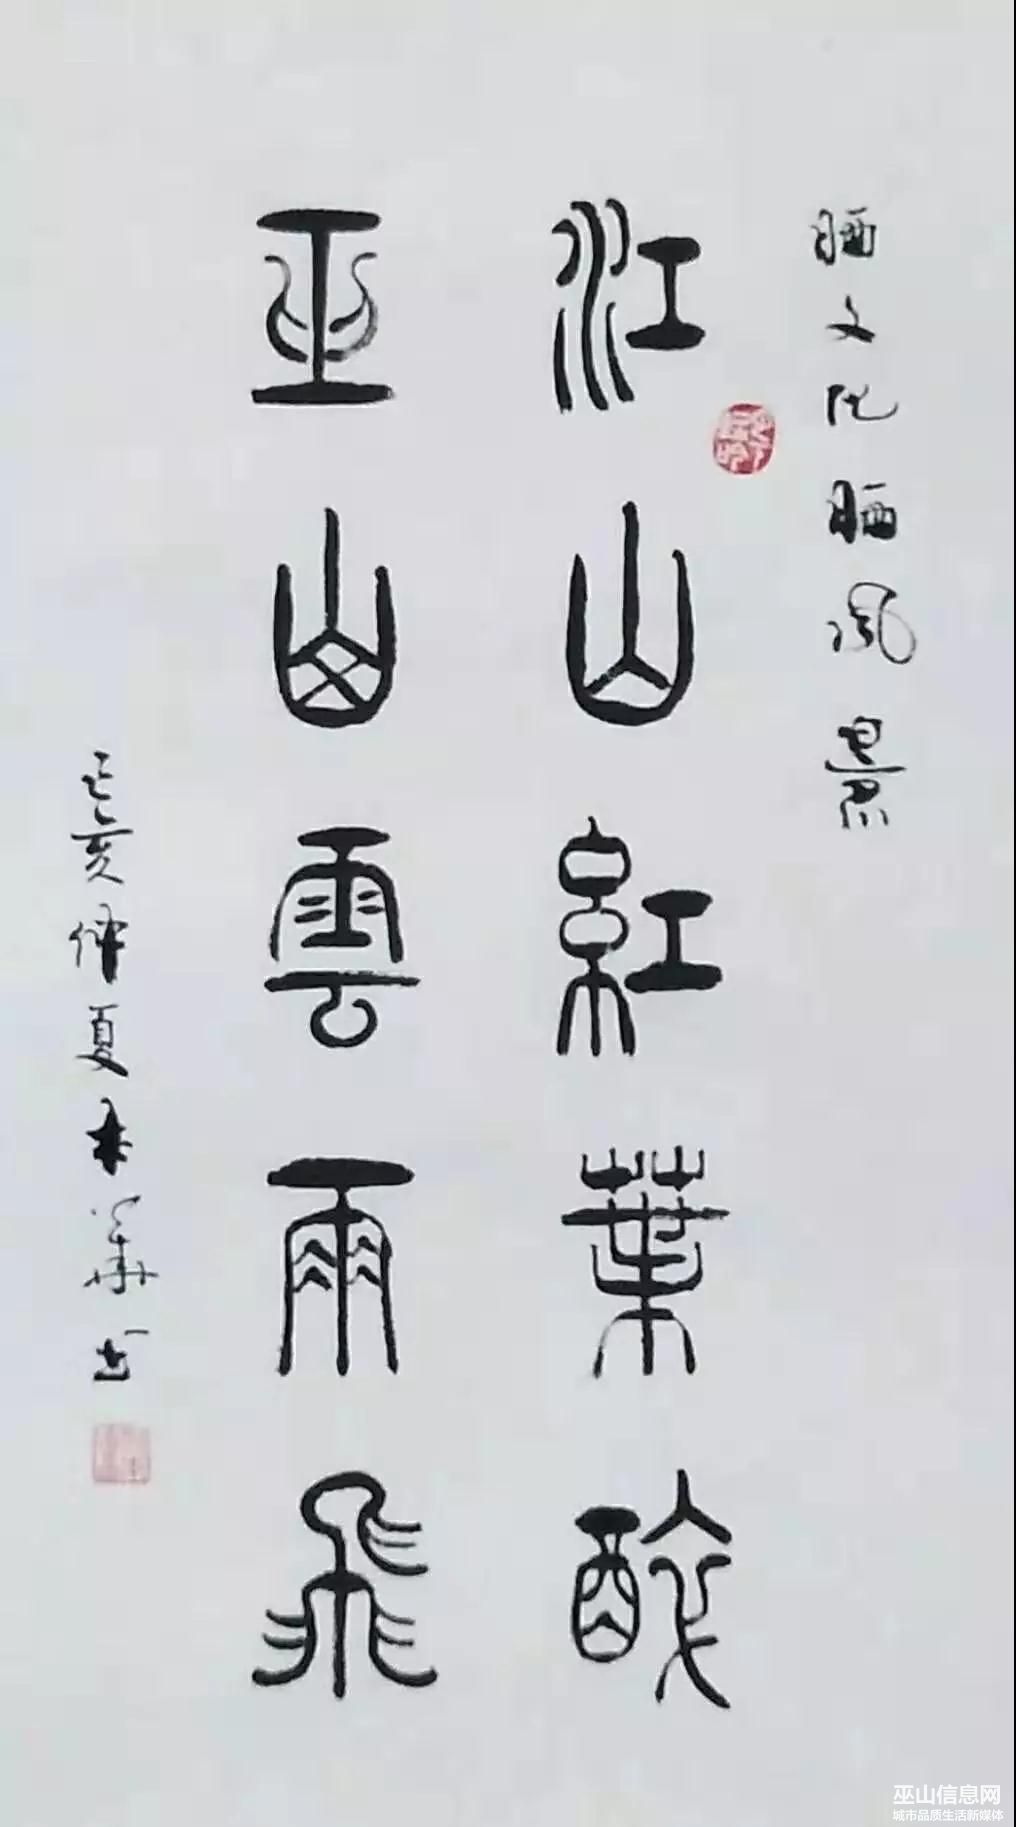 晒文化晒风景
江山紅葉醉
巫山雲雨飛
己亥仲夏本華书
巫山信息网
城市品质生活新媒体